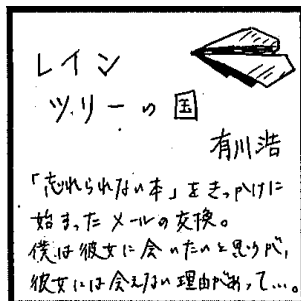 レイン
ツリーの国
有川浩
「忘れられない本」をきっかけに
始まったメールの交換。
僕は彼女に会いたいと思うが、
彼女には会えない理由があって…。